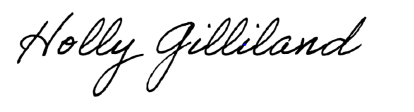 Holly Gilliland